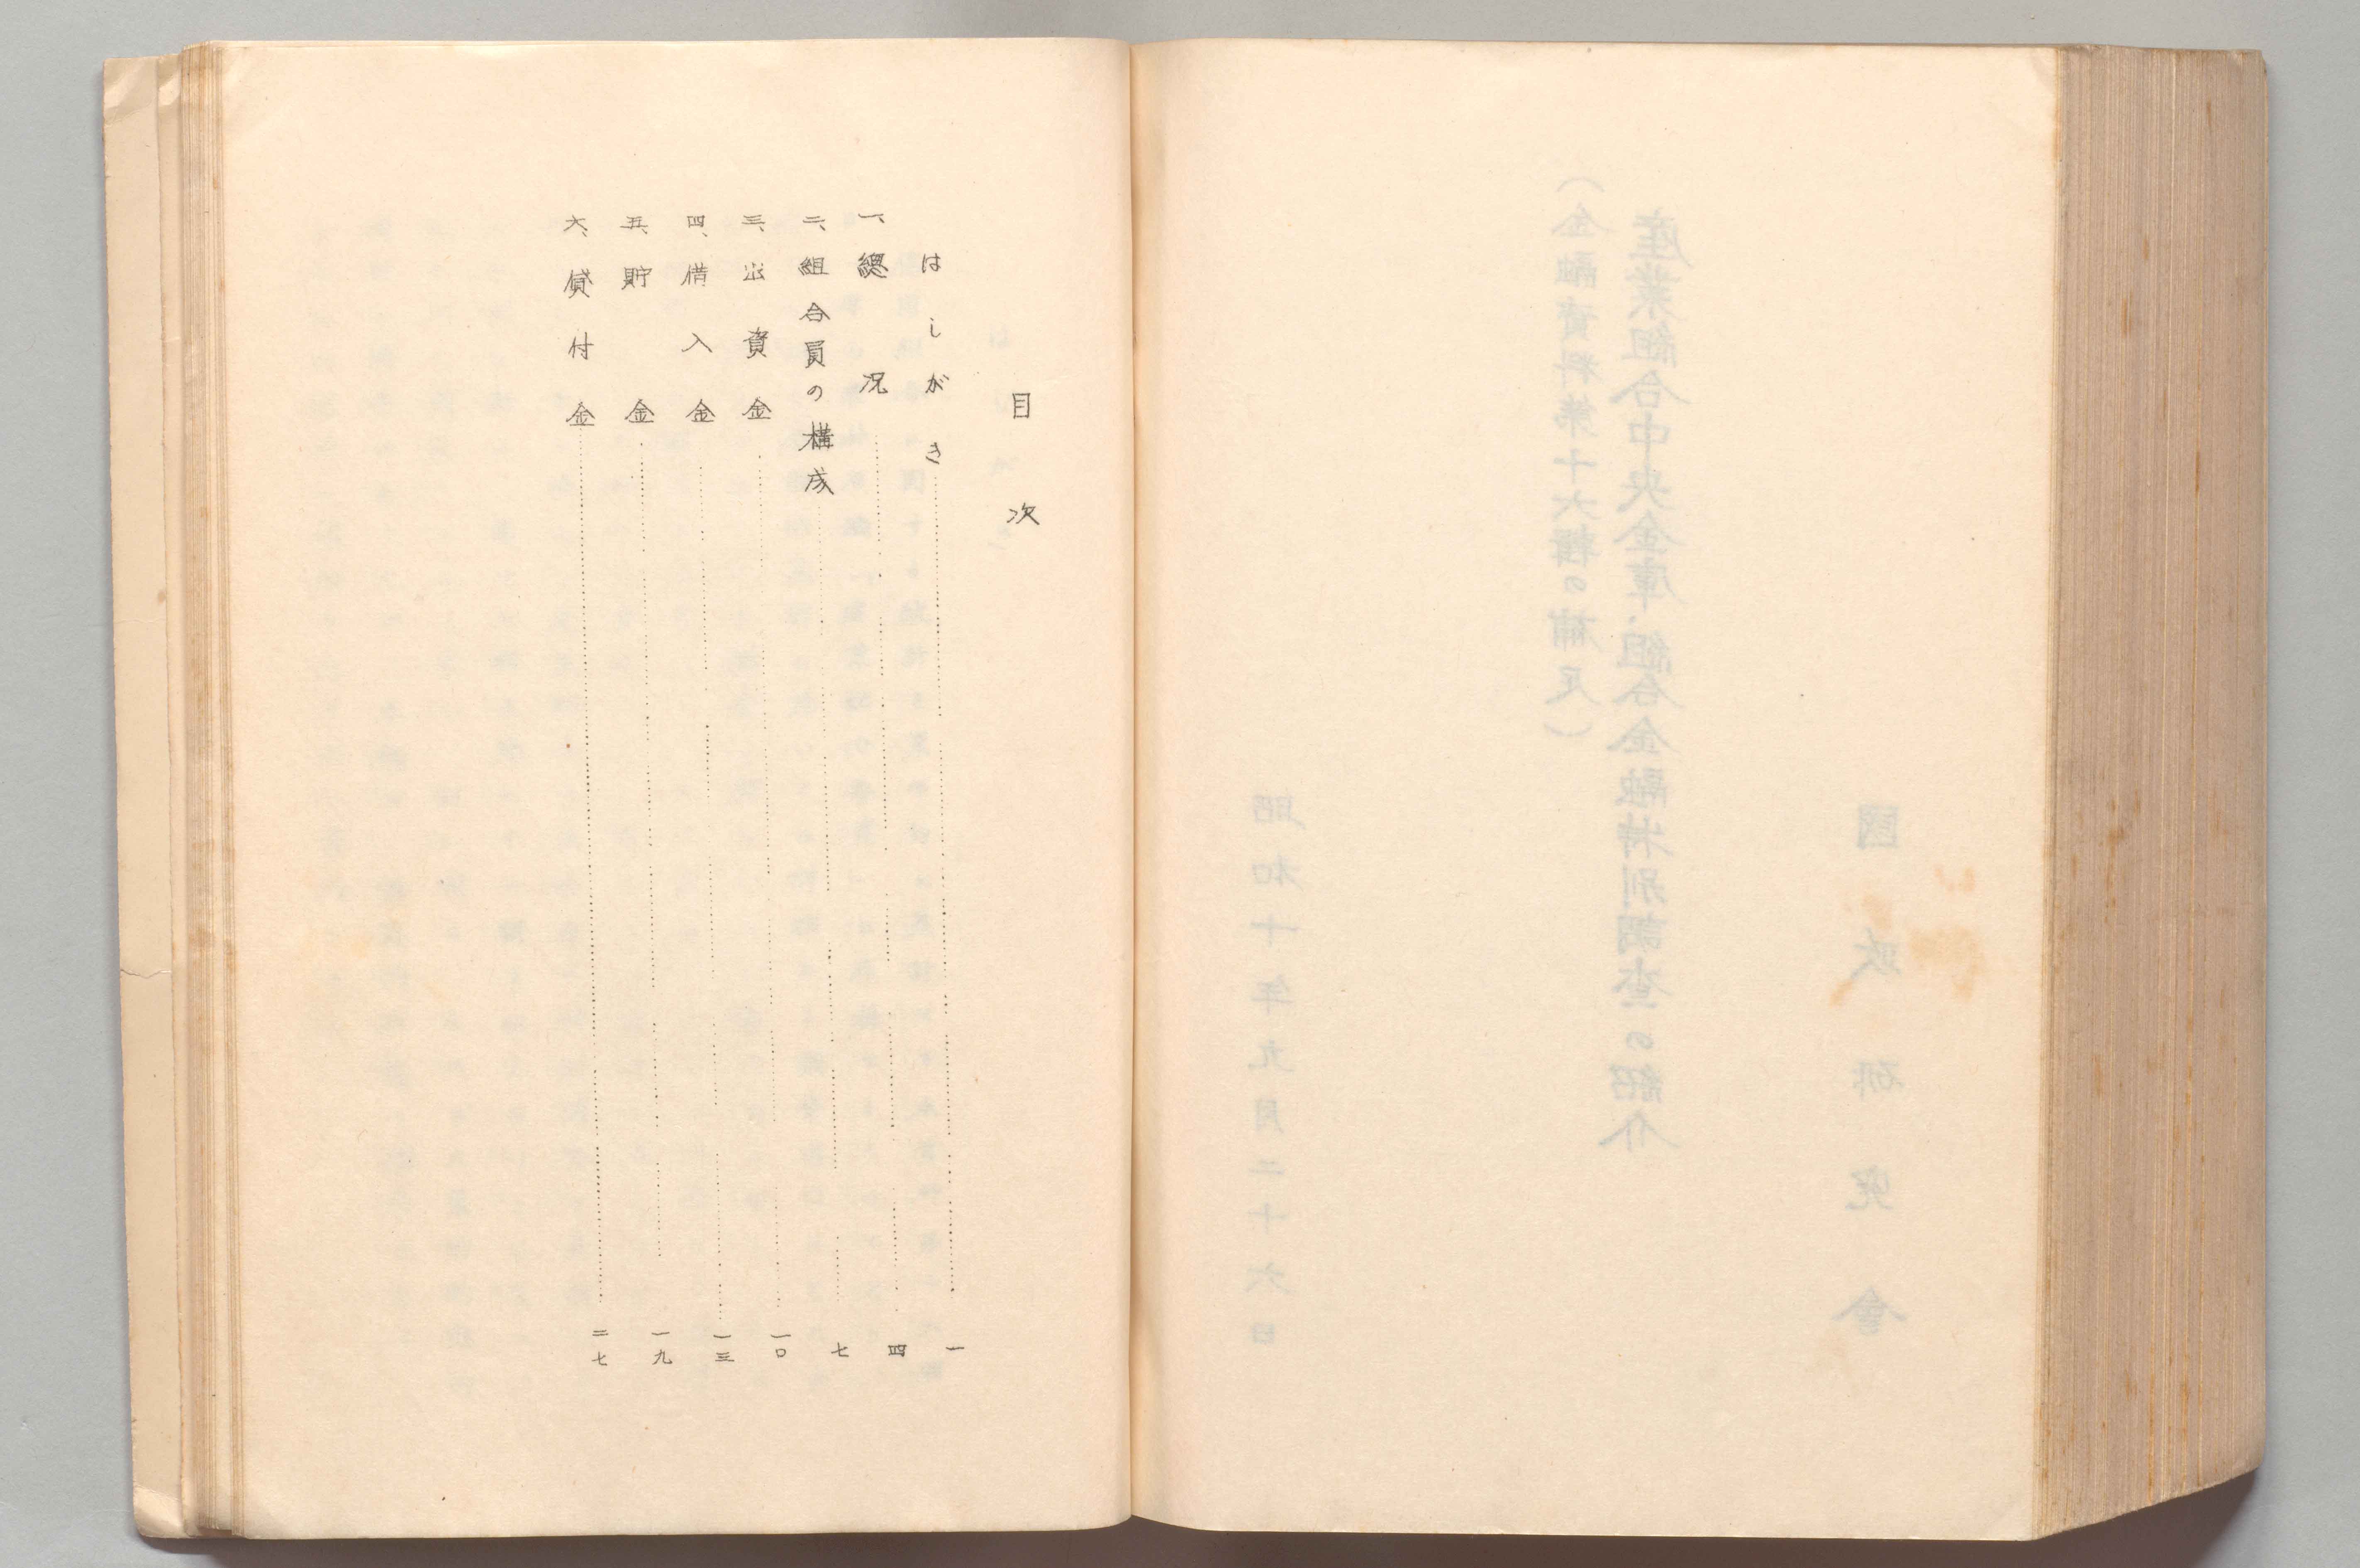 國政研究會
産業組合中央金庫、組合金融特別調査の紹介
(金融資料第十六輯の補足)
昭和十年九月二十六日
目次
はしがき……一
一、總況……四
二、組合員の構成……七
三、出資金……一〇
四、借入金……一三
五、貯金……一九
六、貸付金……二七